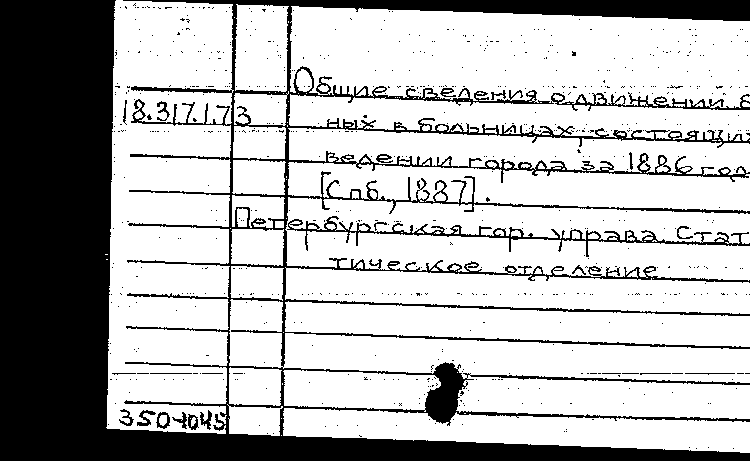 Общие сведения о движении б
18.317.1.73
ных в больницах, состоящих
ведении города за 1886 год
[Спб., 1887].
Петербургская гор. управа. Стат
тическое отделение
350-1045